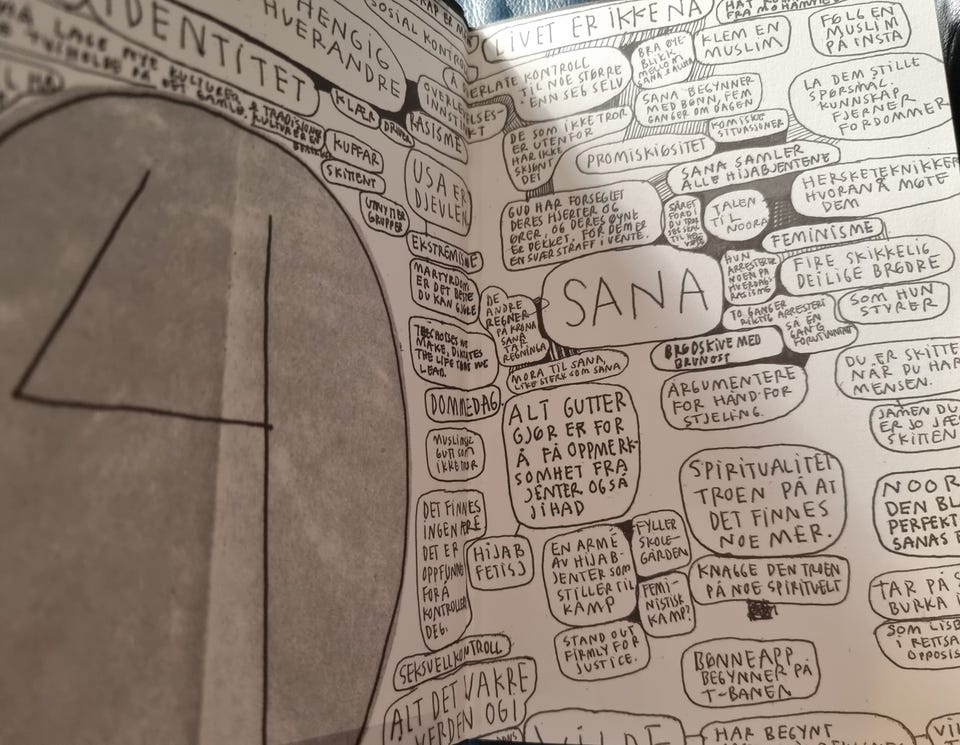 IDENTITET
HENGIG
HVERANDRE
SOSIAL KONTROL
MÅ LAGE NYE KULTURER &
TVIHOLDE PÅ DET GAMLE.
KLÆR
KUFFAR
SKITTENT
UTNYTTER
GRUPPER
RASISME
USA ER
DJEVLEN
EKSTREMISME
MARTYRDØM
ER DET BESTE
DU KAN GJØRE
THE CHOISES WE
MAKE, DIKTATES
THE LIFE THAT WE
LEAD.
DOMMEDAG
MUSLIMSK
GUTT SOM
IKKE TROR
DET FINNES
INGEN ÆRE
DET ER
OPPFUNNET
FOR Å
KONTROLLERE
DEG.
HIJAB
FETISJ
SEKSUELL KONTROLL
ALT DET VAKRE
VERDEN OGI
4
LIVET ER IKKE NÅ
OVERLATE KONTROLL
TIL NOE STØRRE
ENN SEG SELV
BRA ØYE-
BLIKK
MELLOM
KLEM EN
MUSLIM
FØLG EN
MUSLIM
PÅ INSTA
SANA BEGYNNER
MED BØNN, FEM
GANGER OM DAGEN
LA DEM STILLE
SPØRSMÅL.
KUNNSKAP
FJERNER
FORDOMMER
KOMISKE
SITUASJONER
DE SOM IKKE TROR
ER UTENFOR
HAR IKKE
SKJØNT
DET
PROMISKIØSITET
SANA SAMLER
ALLE HIJABJENTENE
HERSKETEKNIKKER
HVORAN Å MØTE
DEM
GUD HAR FORSEGLET
DERES HJERTER OG
ØRER, OG DERES ØYNE
ER DEKKET. FOR DEM ER
EN SVÆR STRAFF I VENTE.
TALEN
TIL
NOORA
FEMINISME
SANA
HUN
ARRESTERER
NOEN PÅ
HVERDAGS-
RASISME
FIRE SKIKKELIG
DEILIGE BRØDRE
SOM HUN
STYRER
TO GANGER
RIKTIG ARRESTERT
SÅ EN
GANG
FORUTINNTATT
DE
ANDRE
REGNER
PÅ KRONA
SANA
TAR
REGNINGA
BRØDSKIVE MED
BRUNOST
MORA TIL SANA,
LIKE STERK SOM SANA
ARGUMENTERE
FOR HÅND-FOR
STJELING.
DU ER SKITTE
NÅR DU HAR
MENSEN.
JAMEN DU
ER JO JÆ
SKITTEN
ALT GUTTER
GJØR ER FOR
Å FÅ OPPMERK-
SOMHET FRA
JENTER OGSÅ
JIHAD
SPIRITUALITET
TROEN PÅ AT
DET FINNES
NOE MER.
NOOR
DEN BL
PERFEKT
SANAS B
EN ARMÉ
AV HIJAB-
JENTER SOM
STILLER TIL
KAMP
FYLLER
SKOLE-
GÅRDEN
FEMI-
NISTISK
KAMP?
KNAGGE DEN TROEN
PÅ NOE SPIRITUELT
TAR PÅ S
BURKA
SOM LISB
I RETTSA
OPPOSIS
STAND OUT
FIRMLY FOR
JUSTICE.
BØNNEAPP
BEGYNNER PÅ
T-BANEN
VILDE
HAR BEGYNT